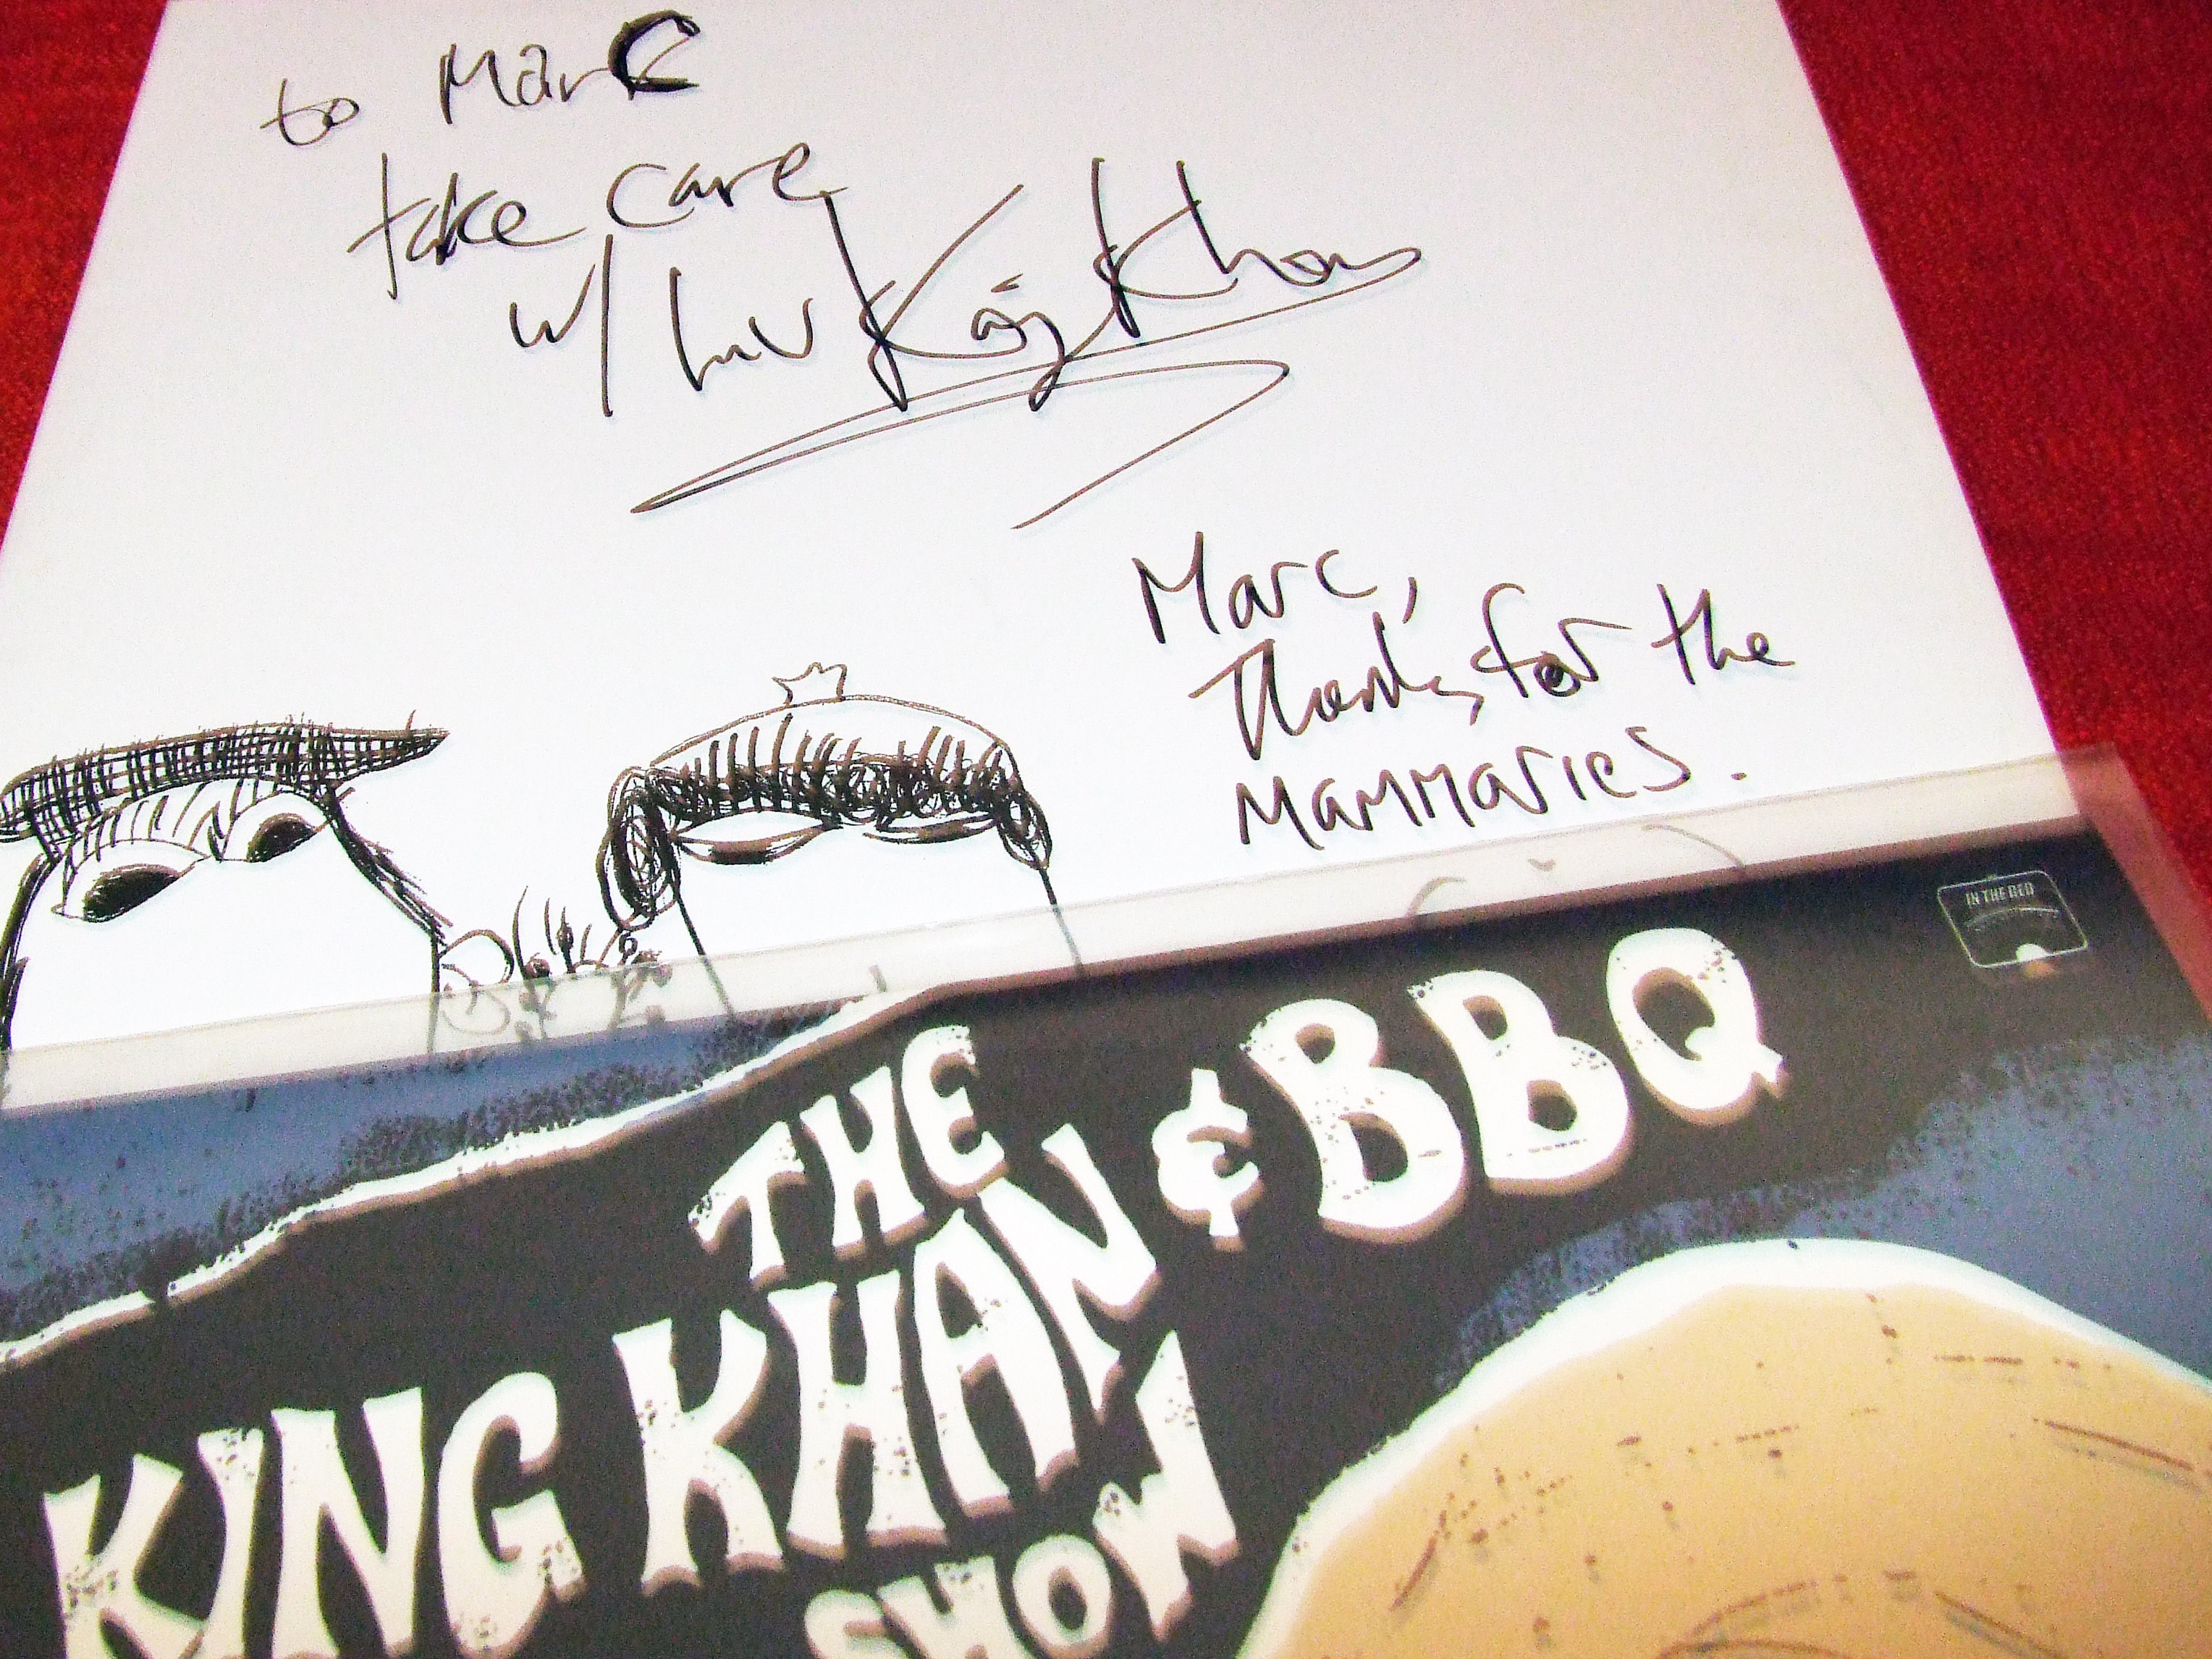 to Marc
take care
w/ luv King Khan
Marc,
Thanks for the
Mammaries.
IN THE RED
THE
KING KHAN & BBQ
SHOW